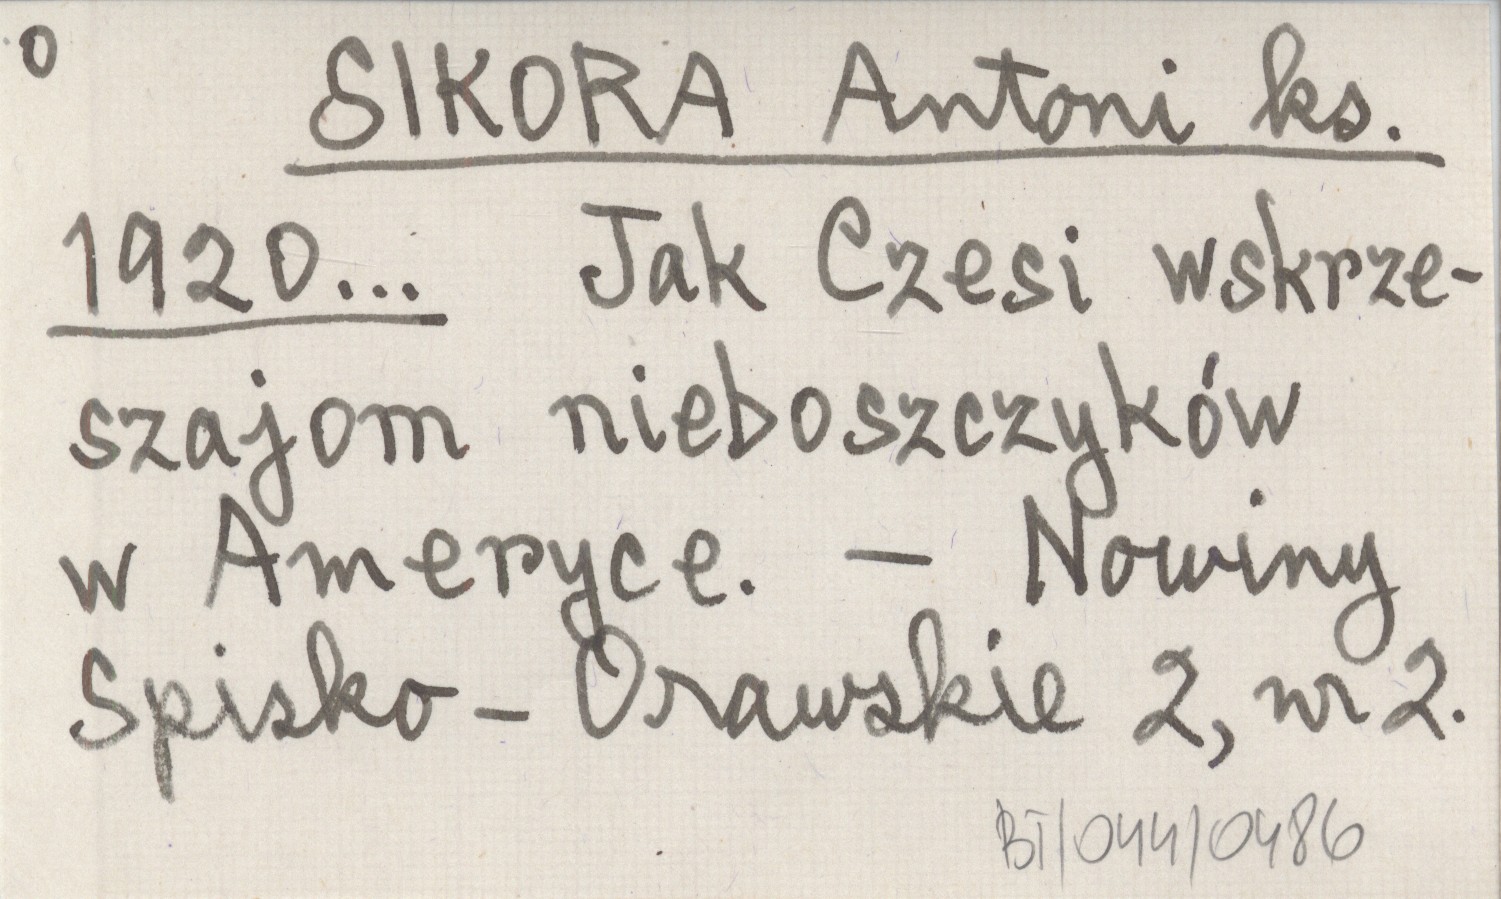 0 SIKORA Antoni ks.
1920... Jak Czesi wskrze-
szajom nieboszczyków
w Ameryce. - Nowiny
Spisko-Orawskie 2, nr 2.
BT/044/0486